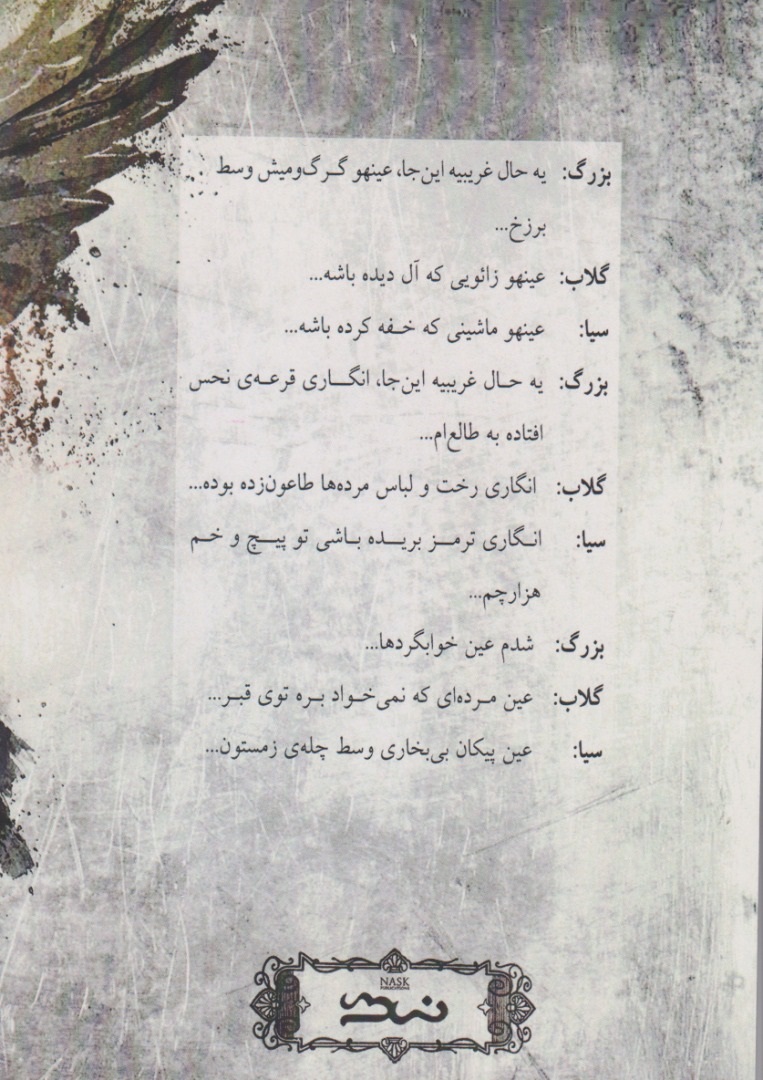 بزرگ: یه حال غریبیه این‌جا، عینهو گرگ‌ومیش وسط
برزخ...
گلاب: عینهو زائویی که آل دیده باشه...
سیا: عینهو ماشینی که خفه کرده باشه...
بزرگ: یه حال غریبیه این‌جا، انگاری قرعه‌ی نحس
افتاده به طالع‌ام...
گلاب: انگاری رخت و لباس مرده‌ها طاعون‌زده بوده...
سیا: انگاری ترمز بریده باشی تو پیچ و خم
هزارچم...
بزرگ: شدم عین خوابگردها...
گلاب: عین مرده‌ای که نمی‌خواد بره توی قبر...
سیا: عین پیکان بی‌بخاری وسط چله‌ی زمستون...
NASK
PUBLICATIONS
نسک